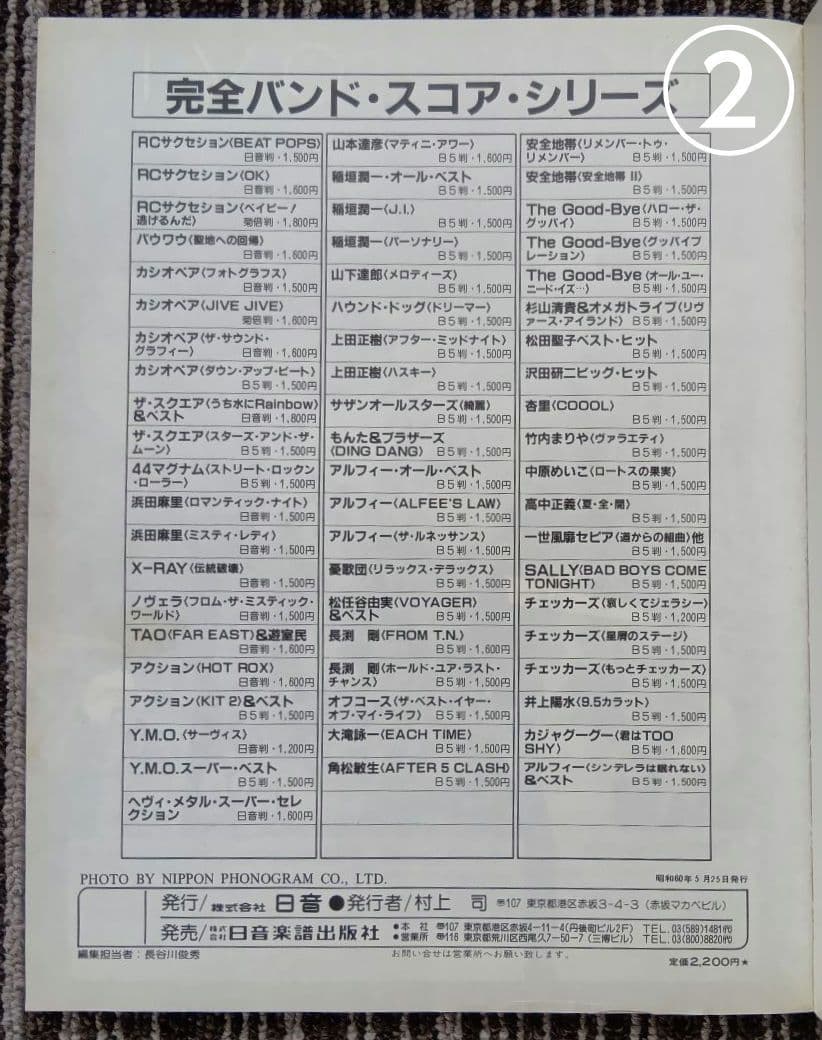 ②
完全バンド・スコア・シリーズ
RCサクセション〈BEAT POPS〉
日音判・1,500円
RCサクセション〈OK〉
日音判・1,600円
RCサクセション〈ベイビー!
逃げるんだ〉 菊倍判・1,800円
バウワウ〈聖地への回帰〉
日音判・1,600円
カシオペア〈フォトグラフス〉
日音判・1,500円
カシオペア〈JIVE JIVE〉
菊倍判・1,600円
カシオペア〈ザ・サウンド・
グラフィー〉 日音判・1,600円
カシオペア〈ダウン・アップ・ビート〉
B5判・1,500円
ザ・スクエア〈うち水にRainbow〉
&ベスト 日音判・1,800円
ザ・スクエア〈スターズ・アンド・ザ・
ムーン〉 B5判・1,500円
44マグナム〈ストリート・ロックン
・ローラー〉 B5判・1,500円
浜田麻里〈ロマンティック・ナイト〉
日音判・1,500円
浜田麻里〈ミスティ・レディ〉
日音判・1,500円
X-RAY〈伝統破壊〉
日音判・1,500円
ノヴェラ〈フロム・ザ・ミスティック・
ワールド〉 日音判・1,500円
TAO〈FAR EAST〉&遊室民
日音判・1,600円
アクション〈HOT ROX〉
日音判・1,600円
アクション〈KIT 2〉&ベスト
B5判・1,500円
Y.M.O.〈サーヴィス〉
日音判・1,200円
Y.M.O.スーパー・ベスト
B5判・1,500円
ヘヴィ・メタル・スーパー・セレ
クション 日音判・1,600円
山本達彦〈マティニ・アワー〉
B5判・1,600円
稲垣潤一・オール・ベスト
B5判・1,500円
稲垣潤一〈J.I.〉
B5判・1,500円
稲垣潤一〈パーソナリー〉
B5判・1,500円
山下達郎〈メロディーズ〉
B5判・1,500円
ハウンド・ドッグ〈ドリーマー〉
B5判・1,500円
上田正樹〈アフター・ミッドナイト〉
B5判・1,500円
上田正樹〈ハスキー〉
B5判・1,500円
サザンオールスターズ〈綺麗〉
B5判・1,500円
もんた&ブラザーズ
〈DING DANG〉 B5判・1,500円
アルフィー・オール・ベスト
B5判・1,500円
アルフィー〈ALFEE'S LAW〉
B5判・1,500円
アルフィー〈ザ・ルネッサンス〉
B5判・1,500円
憂歌団〈リラックス・デラックス〉
B5判・1,500円
松任谷由実〈VOYAGER〉
&ベスト B5判・1,500円
長渕 剛〈FROM T.N.〉
B5判・1,600円
長渕 剛〈ホールド・ユア・ラスト・
チャンス〉 B5判・1,500円
オフコース〈ザ・ベスト・イヤー・
オブ・マイ・ライフ〉 B5判・1,500円
大滝詠一〈EACH TIME〉
B5判・1,500円
角松敏生〈AFTER 5 CLASH〉
B5判・1,500円
安全地帯〈リメンバー・トゥ・
リメンバー〉 B5判・1,500円
安全地帯〈安全地帯 II〉
B5判・1,500円
The Good-Bye〈ハロー・ザ・
グッバイ〉 B5判・1,500円
The Good-Bye〈グッバイブ
レーション〉 B5判・1,500円
The Good-Bye〈オール・ユー・
ニード・イズ…〉 B5判・1,500円
杉山清貴&オメガトライブ〈リヴ
ァース・アイランド〉 B5判・1,500円
松田聖子ベスト・ヒット
B5判・1,500円
沢田研二ビッグ・ヒット
B5判・1,500円
杏里〈COOOL〉
B5判・1,500円
竹内まりや〈ヴァラエティ〉
B5判・1,500円
中原めいこ〈ロートスの果実〉
B5判・1,500円
高中正義〈夏・全・開〉
B5判・1,500円
一世風靡セピア〈道からの組曲〉他
B5判・1,500円
SALLY〈BAD BOYS COME
TONIGHT〉 B5判・1,500円
チェッカーズ〈哀しくてジェラシー〉
B5判・1,200円
チェッカーズ〈星屑のステージ〉
B5判・1,500円
チェッカーズ〈もっとチェッカーズ〉
B5判・1,500円
井上陽水〈9.5カラット〉
B5判・1,500円
カジャグーグー〈君はTOO
SHY〉 B5判・1,600円
アルフィー〈シンデレラは眠れない〉
&ベスト B5判・1,500円
PHOTO BY NIPPON PHONOGRAM CO., LTD.
昭和60年5月25日発行
発行/株式会社 日音●発行者/村上 司 〒107 東京都港区赤坂3-4-3 (赤坂マカベビル)
発売/株式会社日音楽譜出版社
●本 社 〒107 東京都港区赤坂4-11-4(丹後町ビル2F) TEL.03(589)1481代
●営業所 〒116 東京都荒川区西尾久7-50-7(三博ビル) TEL.03(800)8820代
編集担当者:長谷川俊秀
お問い合せは営業所へお願い致します。
定価2,200円★